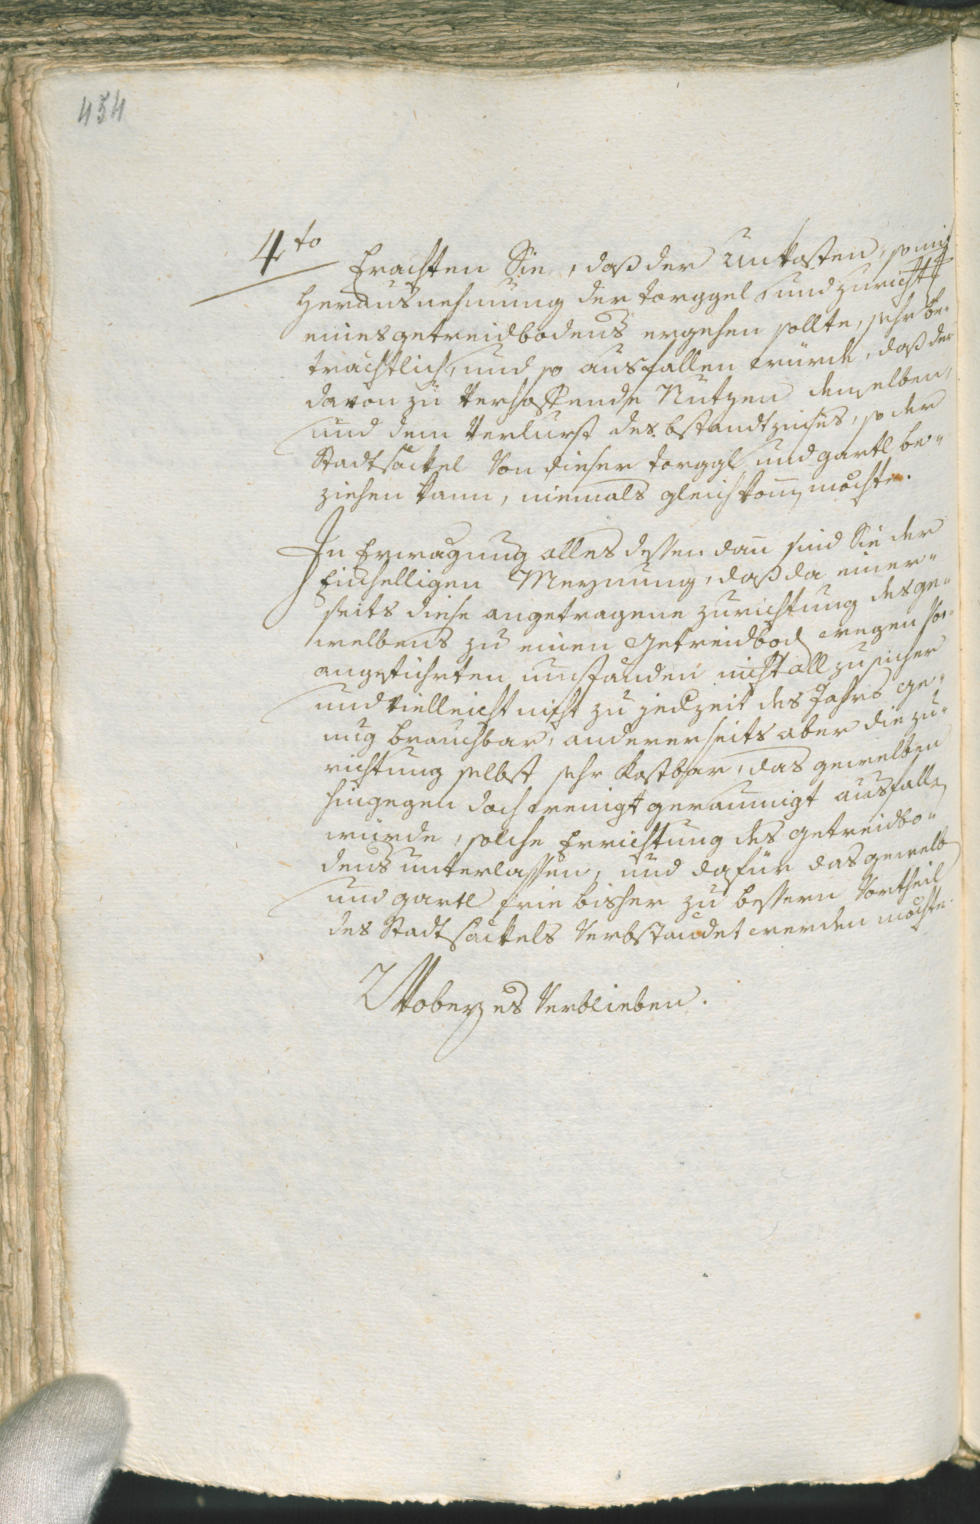 454
4to
Erachten Sie, daß der Unkosten, so mit
Herausnehmung der torggel und zuricht
eines getreidbodens ergehen sollte, sehr be-
trächtlich, und so ausfallen würde, daß der
davon zu verhoffende Nutzen demselben,
und dem Verlurst des bstandtzinses, so der
Stadtsäckel Von dieser torggl und gartl be-
ziehen kann, niemals gleich kom̄en möchte.
In Erwägung alles dessen dan̄ sind Sie der
Einhelligen Meynung, daß da einer-
seits diese angetragene zurichtung des ge-
welbens zu einen getreidbod wegen
angeführten umständen nicht all zu sicher
und vielleicht nicht zu jedzeit des Jahrs ge-
nug brauchbar, andererseits aber die zu-
richtung selbst sehr kostbar, das gewelben
hingegen doch wenigt geraumigt ausfallen
würde, solche Errichtung des getreidbo-
dens unterlassen, und dafür das gewelb
und gartl wie bisher zu bessern Vortheil
des Stadtsäckels Verbstandet werden möchte.
Wobey es Verblieben.